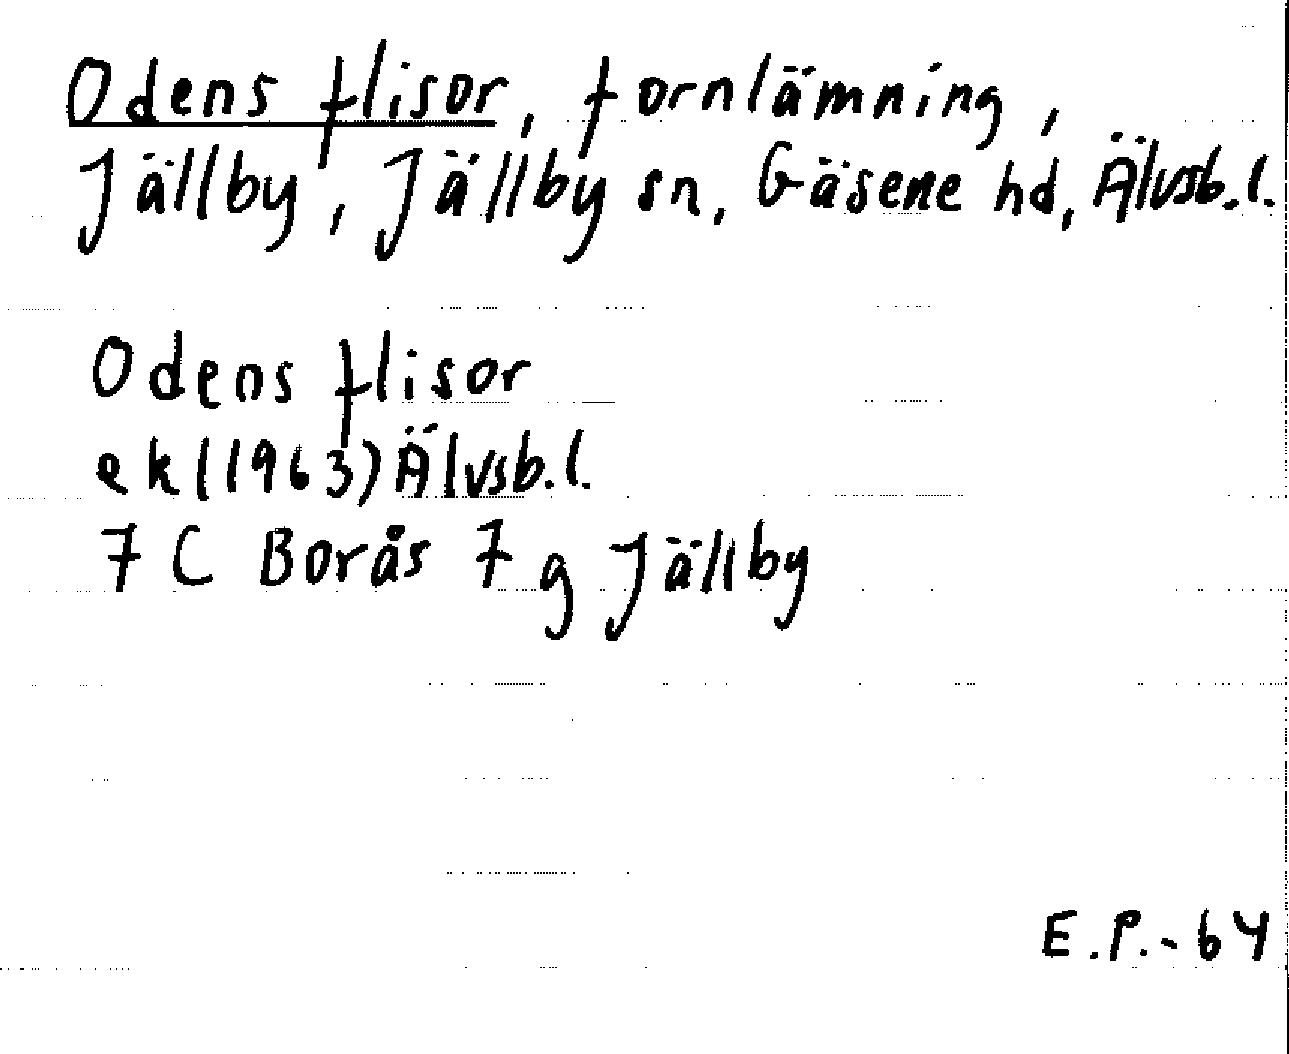 Odens flisor, fornlämning,
Jällby, Jällby sn, Gäsene hd, Älvsb.l.
Odens flisor
ek (1963) Älvsb.l.
7 C Borås 7 g Jällby
E.P.-64